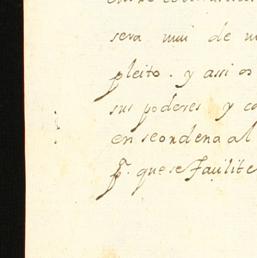 sera mui de
pleito. y assi os
sus poderes y co
en seordena al
p.ª que se façilite